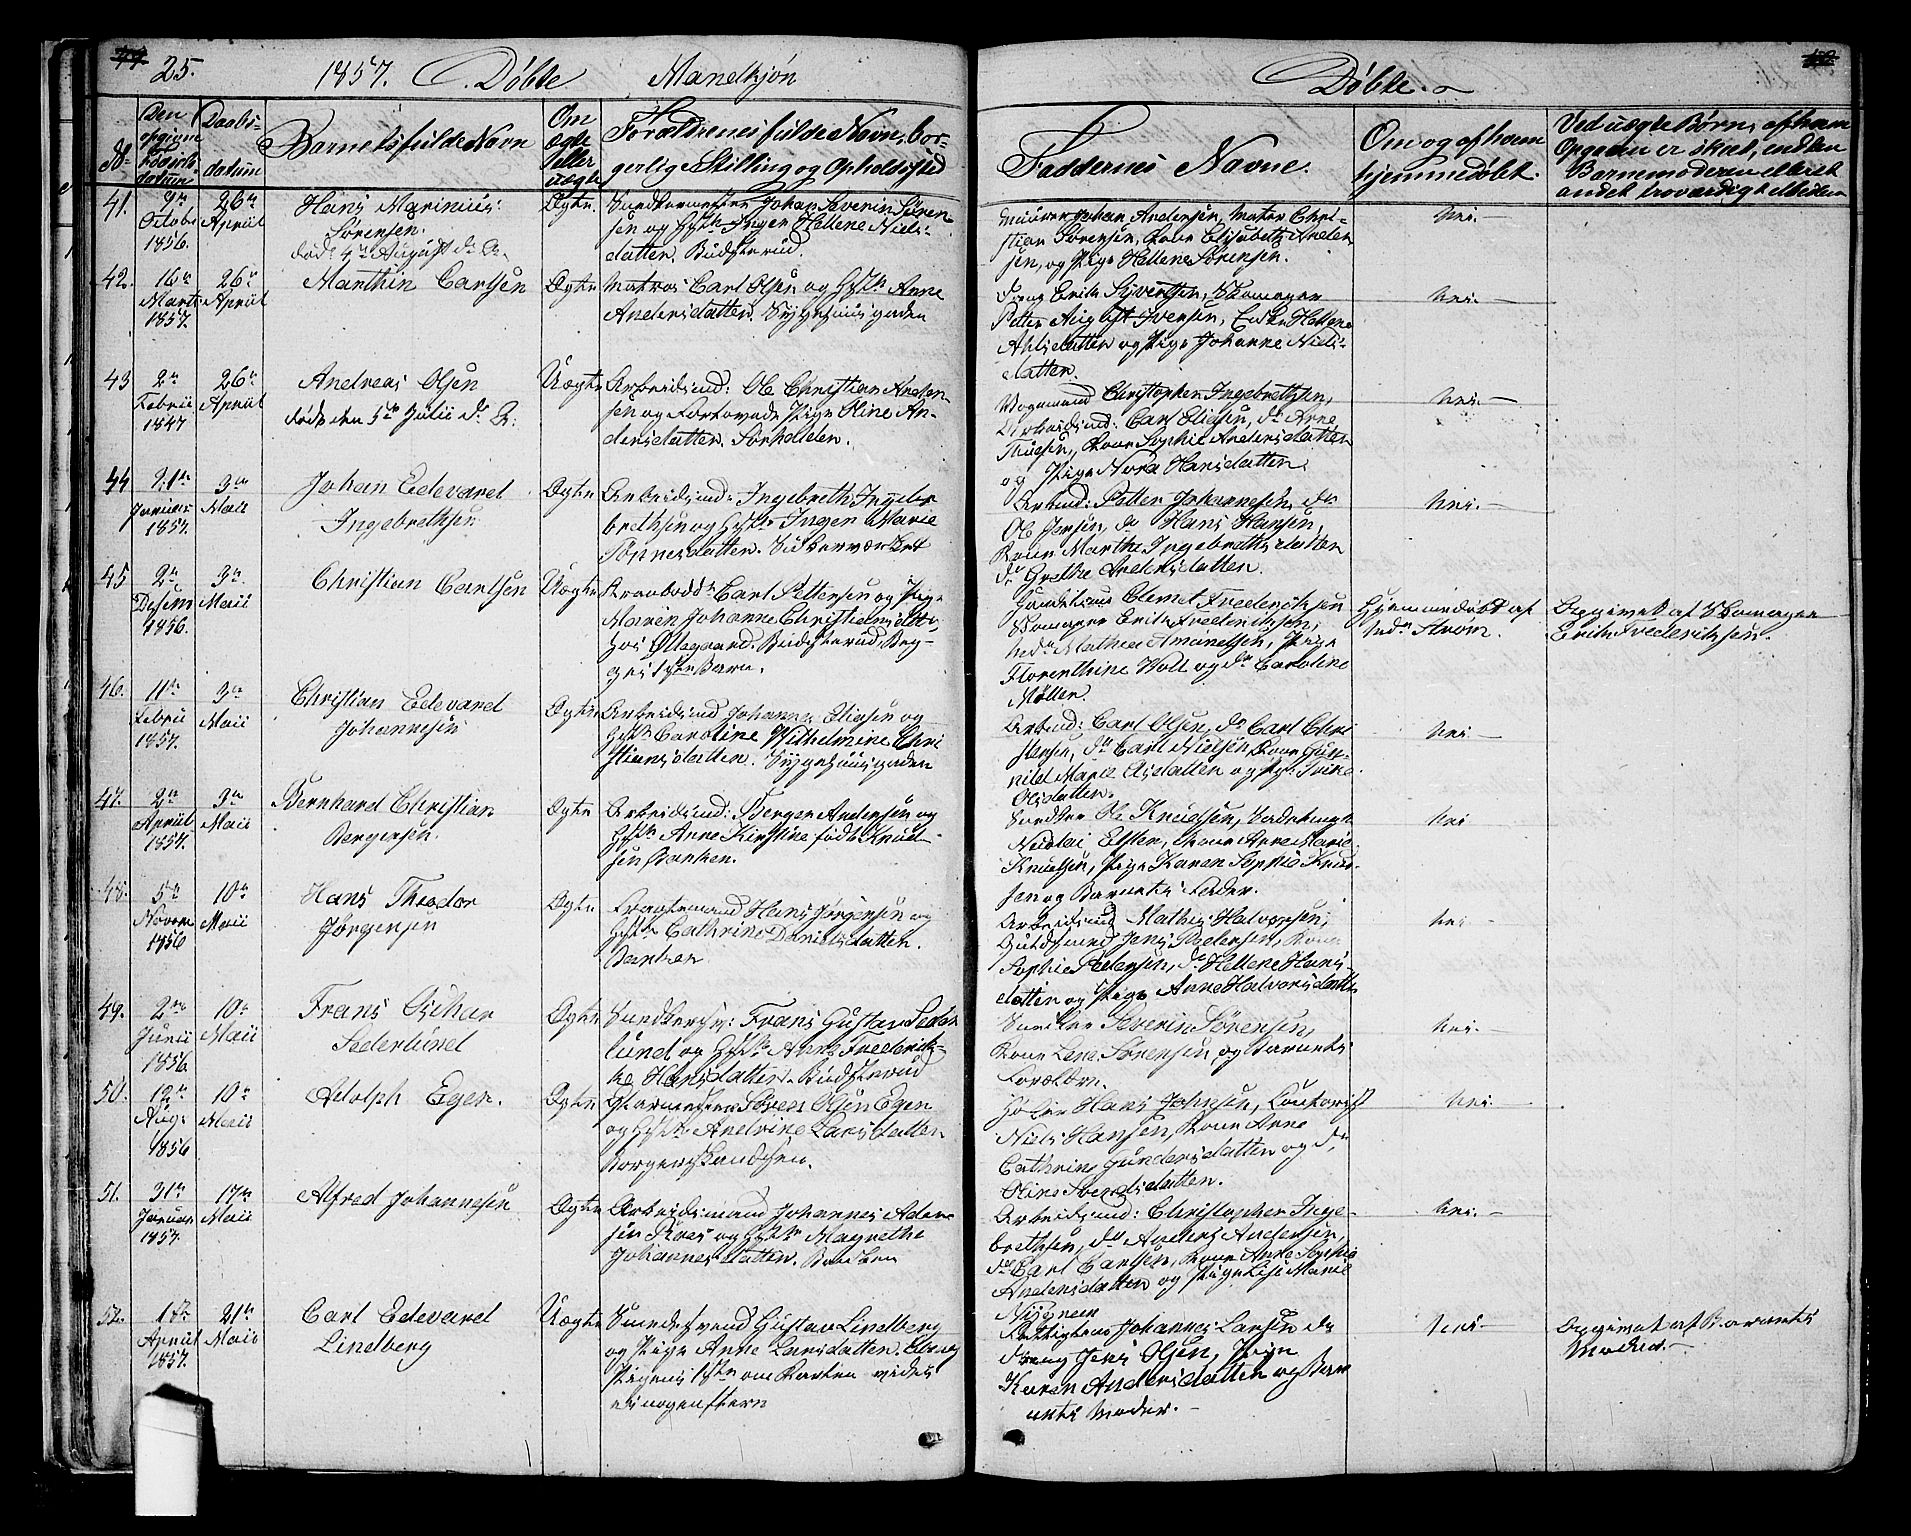 25.
1857. Døbte Mandkjøn
No
Den opgivne Fødsels datum
Daabs-datum
Barnets fulde Navn
Om ægte eller uægte
Forældrenes fulde Navn, borgerlige Stilling og Opholdssted
Døbte
Faddernes Navne.
Om og af hvem hjemmedøbt.
Ved uægte Børn, af hvem Opgaven er skeet, enten Barnemoderen eller et andet troværdigt
41.
9de Octobr 1856.
26de April
Hans Marinius Sørensen.
død 4de August d. A.
Ægte.
Johan Severin Sørensen og Hstr Inger Hellene Nielsdatter. Budsterud.
Muurer Johan Andersen, Mater Christian Sørensen, Kone Elisabeth Andersen, og Pige Hellene Sørensen.
Nei.
42.
16de Marts 1857.
26de April
Marthin Carlsen
Ægte
Matros Carl Olsen og Hstr Anne Andersdatter. Sygehuusgaden
Dreng Erik Syvertsen, Skomager Petter August Iversen, Enke Hellene Ahlsdatter og Pige Johanne Nielsdatter.
Nei.
43
2de Februi 1847
26de April
Andreas Olsen
døde den 5te Julii d. A.
Uægte
Arbeidsmd: Ole Christian Andersen og Forlovede Pige Oline Andersdatter. Torholden.
Vognmand Christopher Ingebrethsen, Arbeidsmd: Carl Eliasen, do Arne Thuesen, Kone Sophie Andersdatter og Pige Nora Hansdatter.
Nei.
44
21de Januar 1857.
3die Maii
Johan Edevard Ingebrethsen
Ægte
Arbeidsmd: Ingebreth Ingebrethsen og Hstr Inger Marie Tønnesdatter.
Arbmd: Petter Johannesen, do Ole Jensen, do Hans Hansen, Kone Marthe Ingebrethsdatter do Grethe Andersdatter.
Nei.
45
2de Desem 1856.
3de Maii
Christian Carlsen
Uægte
Carl Pettersen og Pige Maren Johanne Christiansdatter, hos Ottegaard. Budsterud. Begges 1ste Barn.
Clemet Frederiksen Skomager Erik Frederiksen, Mathea Amundsen, Pige Florenthine Holt og do Caroline Møller
Hjemmedøbt af Strøm.
Opgivet af Skomager Erik Frederiksen.
46.
11te Februi 1857.
3de Maii
Christian Edevard Johannesen
Ægte
Arbeidsmd Johannes Eliasen og Hstr Caroline Wilhelmine Christiansdatter. Sygehuusgaden
Arbmd: Carl Olsen, do Carl Christensen, do Carl Nielsen, Kone Gunnild Marie Olsdatter og Pige Trine Olsdatter.
Nei
47.
2de April 1857.
3de Maii
Bernhard Christian Bergersen.
Ægte
Arbeidsmd: Berger Andersen og Hstr Anne Kirstine født Knudsen Banken.
Snedker Ole Knudsen, Nicolai Elsten, Kone Anne Marie Knudsen, Pige Karen Sophie Knudsen og Barnets Fader.
Nei
48.
5te Novem 1856
10de Maii
Hans Theodor Jørgensen
Ægte
Fragtemand Hans Jørgensen og Hstr Cathrine Danielsdatter. Banken
Arbeidsmd Mathis Halvorsen, Guldsmed Jens Pedersen, Kone Sophie Pedersen, do Hellene Hansdatter og Pige Anne Halvorsdatter
Nei
49.
2den Junii 1856.
10de Maii
Frans Oskar Sederlund
Ægte
Snedkersv: Frans Gustav Sederlund og Hstr Anne Frederikke Hansdatter. Budsterud
Snedker Severin Sørensen, Kone Lene Sørensen og Barnets Forældre.
Nei.
50.
12te Aug: 1856
10de Maii
Adolph Eger.
Ægte
Glarmester Søren Olsen Eger og Hstr Andrine Larsdatter
Høker Hans Johnsen, Contorist Niels Hansen, Kone Anne Cathrin Gundersdatter og do Oline Svendsdatter.
Nei.
51.
31te Januar 1857.
17de Maii
Alfred Johannesen
Ægte
Arbeidsmand Johannes og Hstr Magrethe Johannesdatter. Banken
Arbeidsmd: Christopher Ingebrethsen, do Anders Andersen, do Carl Carlsen, Kone Anne Sophie Andersdatter og Pige Lise Marie Nygreen
Nei.
52.
1ste April 1857.
21de Maii
Carl Edevard Lindberg
Uægte
Smedesvend Gustav Lindberg og Pige Anne Larsdatter.
Johannes Larsen do Dreng Jens Olsen, Pige Karen Andersdatter og Barnets Moder.
Nei
Opgivet af Barnets Moder.